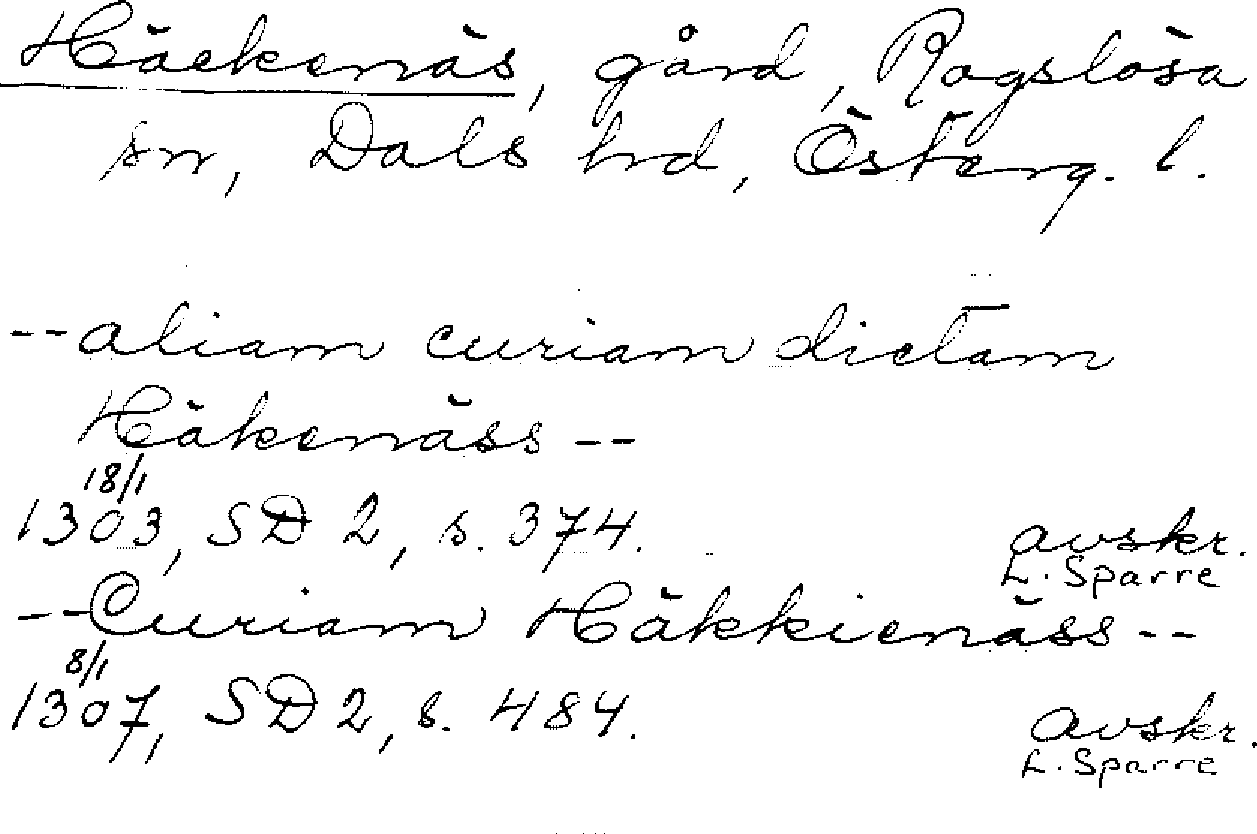 Häckenäs, gård, Rogslösa
sn, Dals hrd, Österg. l.
--aliam curiam dictam
Häkenäss--
18/1
1303, SD 2, s. 374. avskr.
L. Sparre
--Curiam Häkkienäss--
8/1
1307, SD 2, s. 484. avskr.
L. Sparre